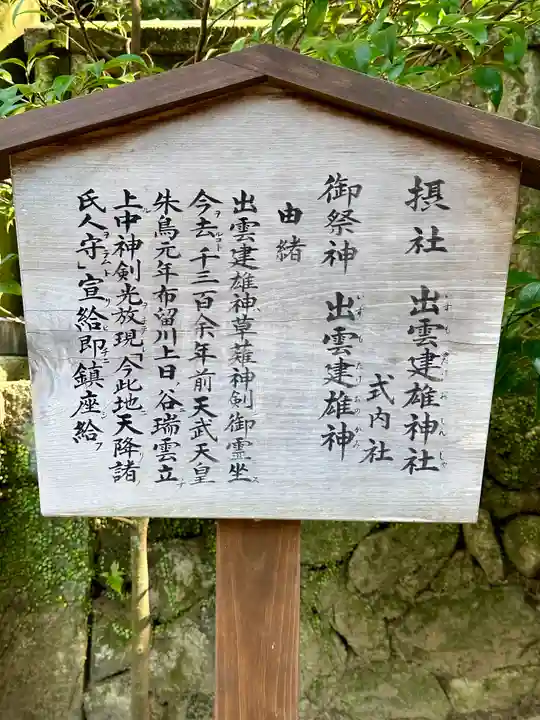 摂社 出雲建雄神社
式内社
御祭神 出雲建雄神
由緒
出雲建雄神ハ草薙神剣御霊坐ス
今ヲ去ルコト千三百余年前天武天皇
朱鳥元年布留川上日ノ谷瑞雲立チ
上ル中神剣光放現「今此地ニ天降リ諸ノ
氏人ヲ守ラム」宣給ヒ即チ鎮座シ給フ